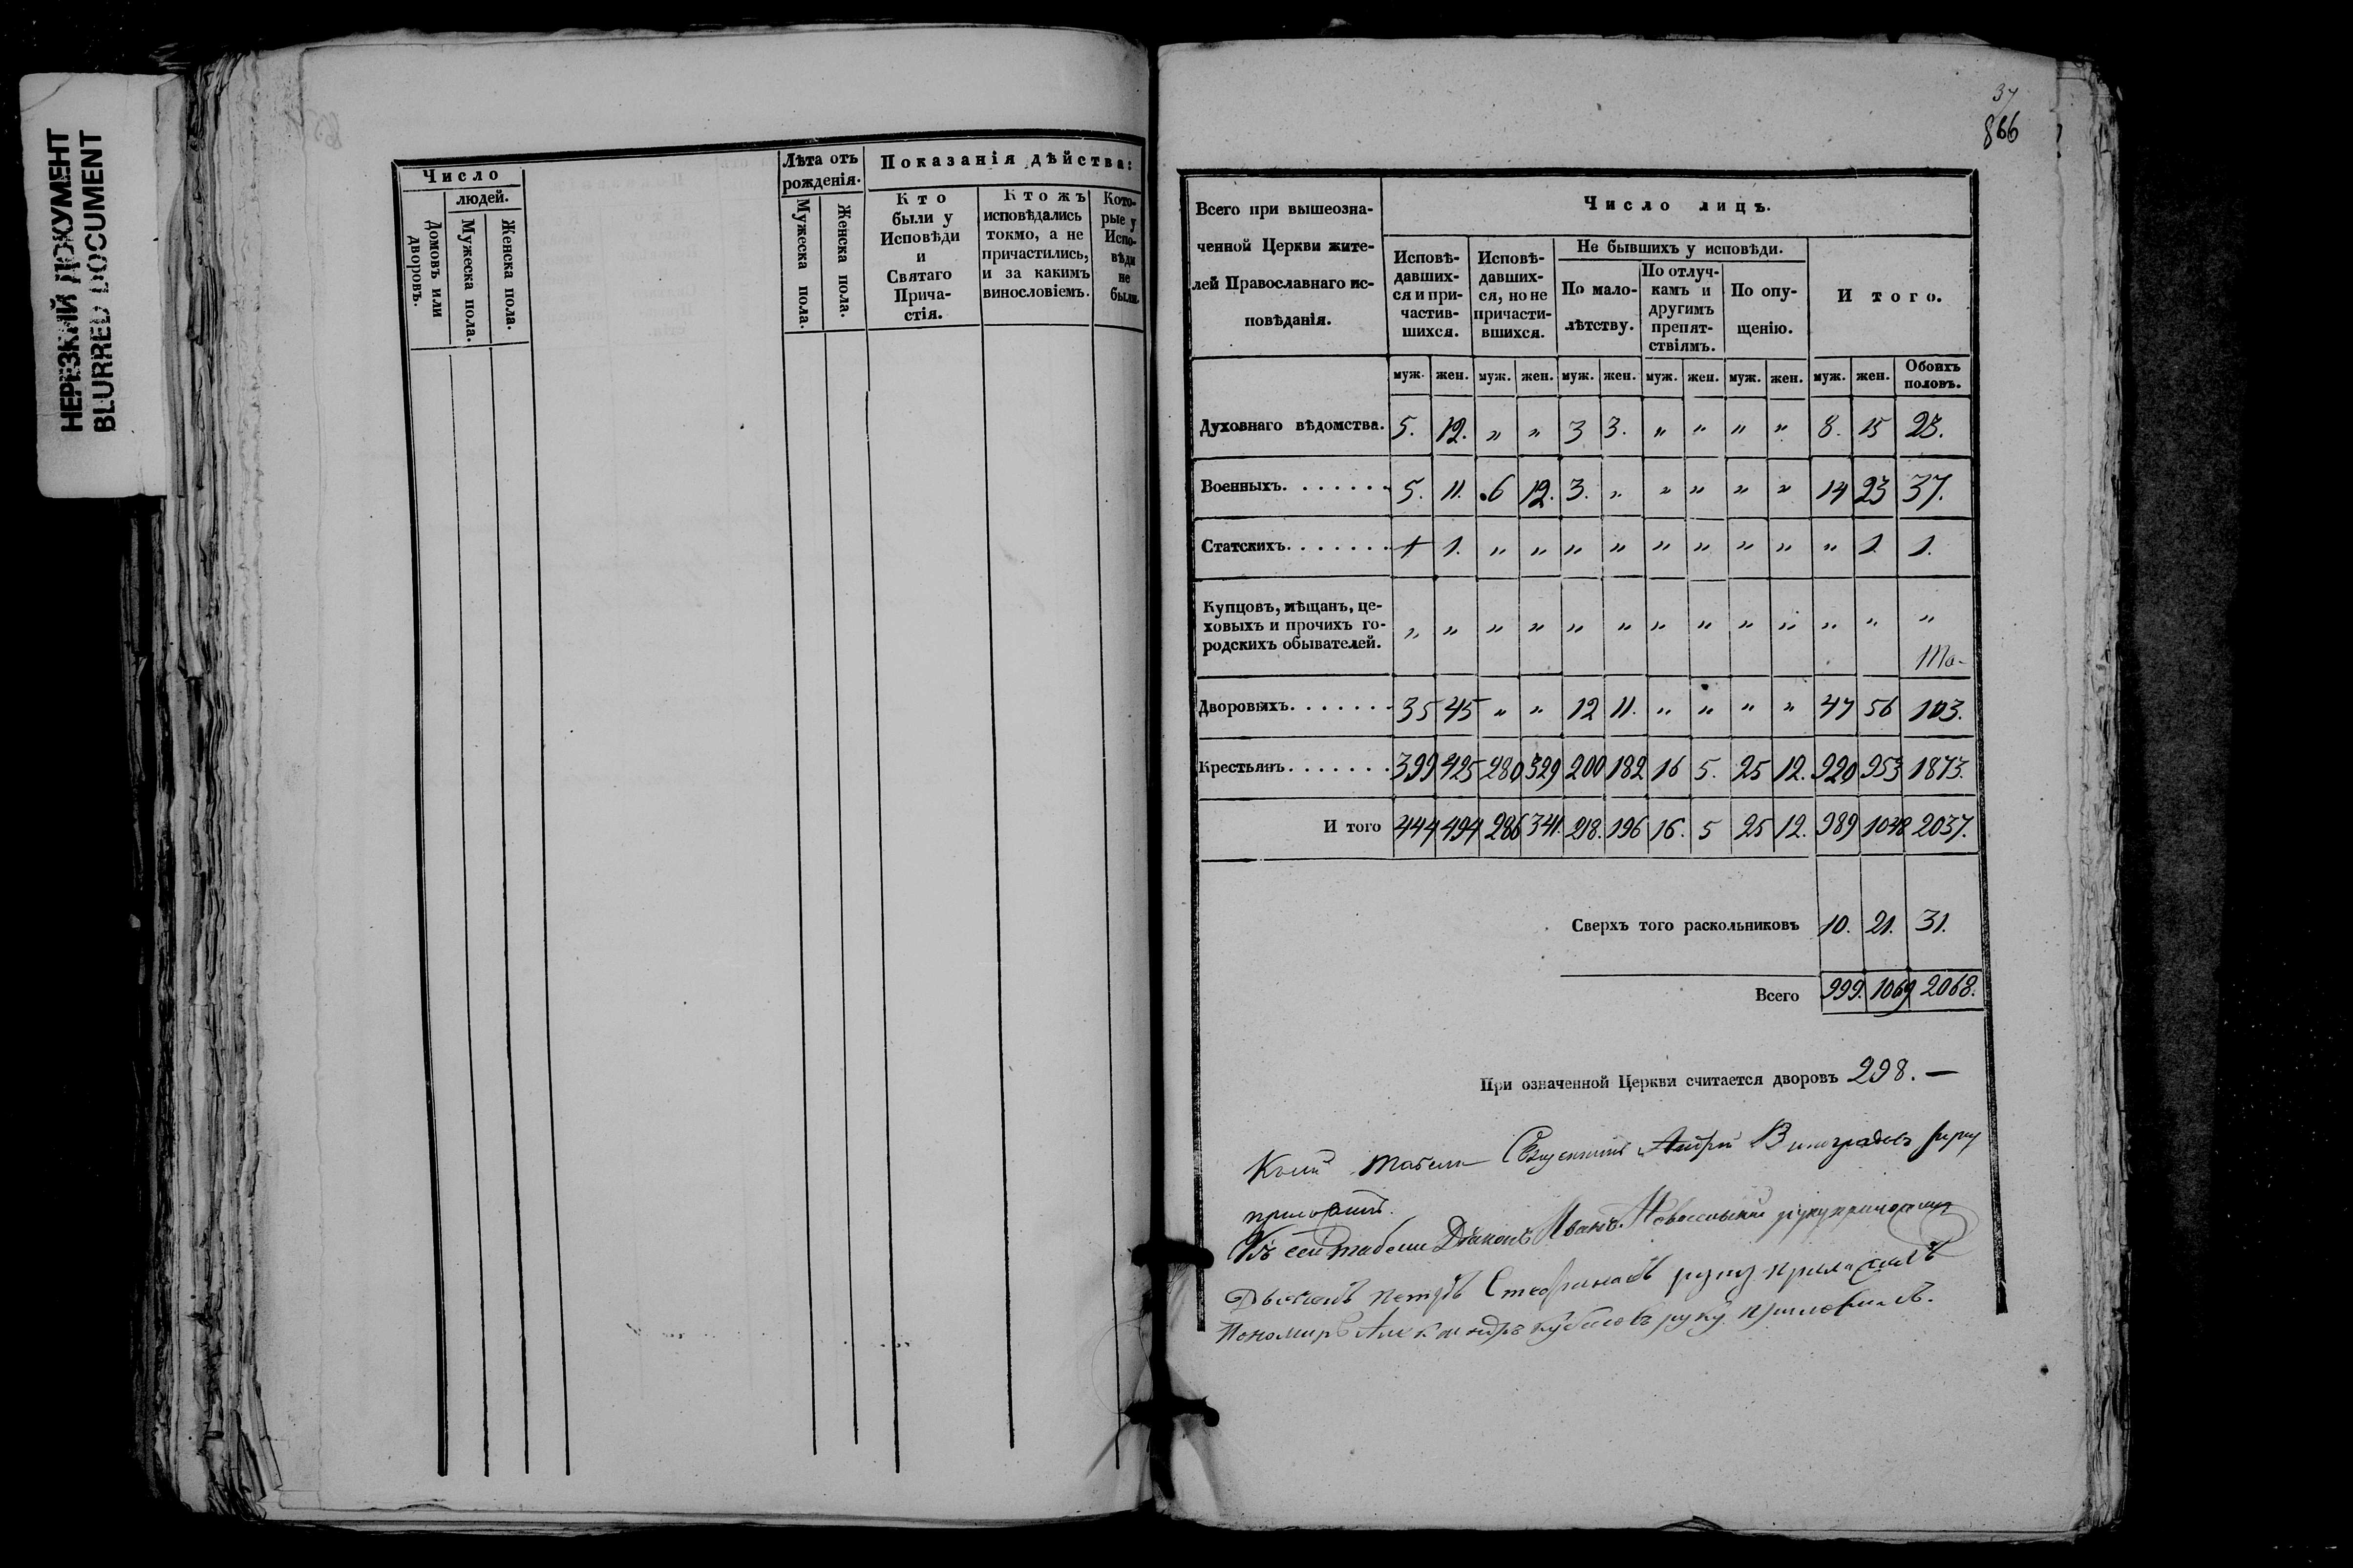 НЕРЕЗКИЙ ДОКУМЕНТ
BLURRED DOCUMENT
Число
людей.
Домовъ или дворовъ.
Мужеска пола.
Женска пола.
Лѣта отъ
рожденія.
Мужеска пола.
Женска пола.
Показанія дѣйства:
Кто
были у
Исповѣди
и
Святаго
Прича-
стія.
Ктожъ
исповѣдались
токмо, а не
причастились,
и за какимъ
винословіемъ.
Кото-
рые у
Испо-
вѣди
не
были.
37
866
Всего при вышеозна-
ченной Церкви жите-
лей Православнаго ис-
повѣданія.
Число лицъ.
Исповѣ-
давших-
ся и при-
частив-
шихся.
Исповѣ-
давших-
ся, но не
причасти-
вшихся.
Не бывшихъ у исповѣди.
По мало-
лѣтству.
По отлуч-
камъ и
другимъ
препят-
ствіямъ.
По опу-
щенію.
И того.
муж. жен. муж. жен. муж. жен. муж. жен. муж. жен. муж. жен. Обоихъ половъ.
Духовнаго вѣдомства. 5. 12. " " 3 3. " " " " 8. 15 23.
Военныхъ. . . . . . . 5. 11. 6 12. 3. " " " " " 14 23 37.
Статскихъ. . . . . . . 1. " " " " " " " " " 1 1.
Купцовъ, мѣщанъ, це-
ховыхъ и прочихъ го-
родскихъ обывателей. " " " " " " " " " " " " "
Дворовыхъ. . . . . . . 35 45 " " 12 11. " " " " 47 56 103.
Крестьянъ. . . . . . . 399 425 280 329 200 182 16 5. 25 12. 920 953 1873.
И того 444 494 286 341. 218. 196 16. 5 25 12. 989 1048 2037.
Сверхъ того раскольниковъ 10. 21. 31.
Всего 999. 1069 2068.
При означенной Церкви считается дворовъ 298. —
табели Священникъ Андрей Виноградовъ руку
приложилъ.
Къ сей табели Дьяконъ Иванъ руку приложилъ
Дьячекъ Петръ руку приложилъ
Пономарь Александръ руку приложилъ.